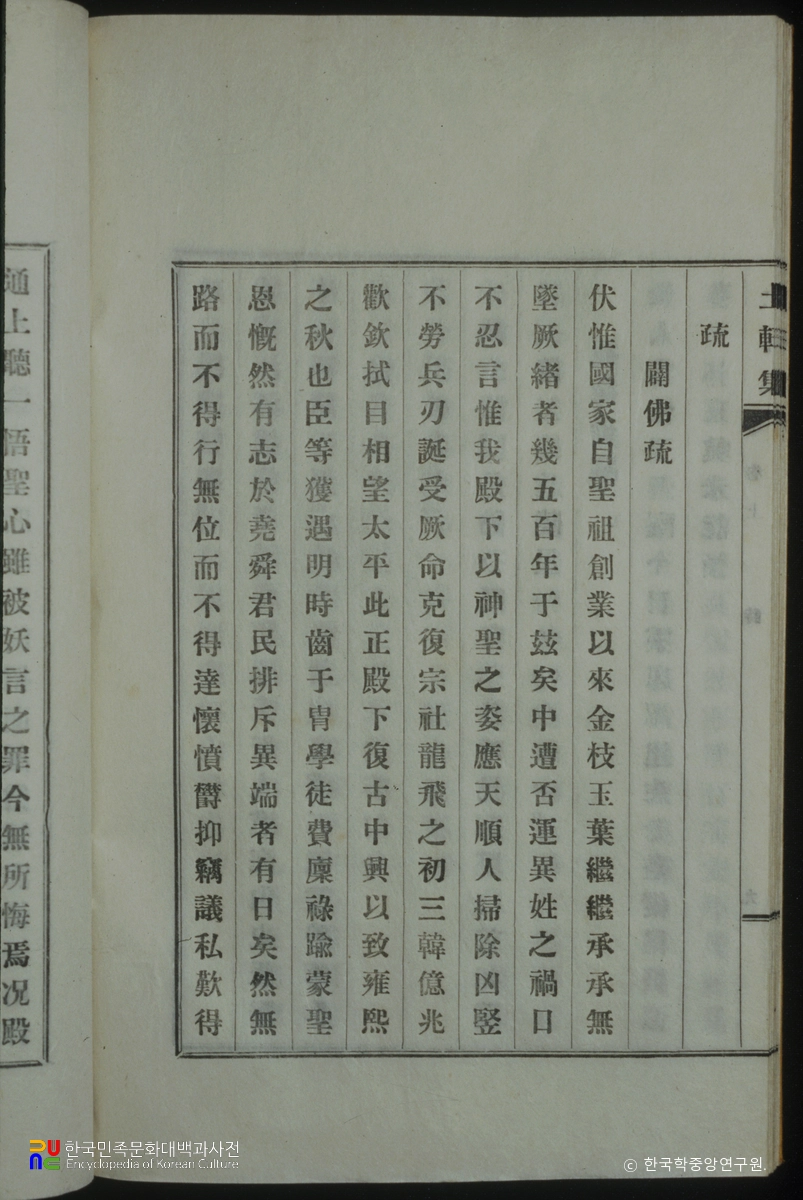 疏
闢佛疏
伏惟國家自聖祖創業以來金枝玉葉繼繼承承無
墜厥緖者幾五百年于玆矣中遭否運異姓之禍口
不忍言惟我殿下以神聖之姿應天順人掃除凶竪
不勞兵刃誕受厥命克復宗社龍飛之初三韓億兆
歡欽拭目相望太平此正殿下復古中興以致雍熙
之秋也臣等獲遇明時齒于冑學徒費廩祿踰蒙聖
恩慨然有志於堯舜君民排斥異端者有日矣然無
路而不得行無位而不得達懷憤欝抑竊議私歎得
通上聽一悟聖心雖被妖言之罪今無所悔焉况殿
한국민족문화대백과사전
Encyclopedia of Korean Culture
ⓒ 한국학중앙연구원.